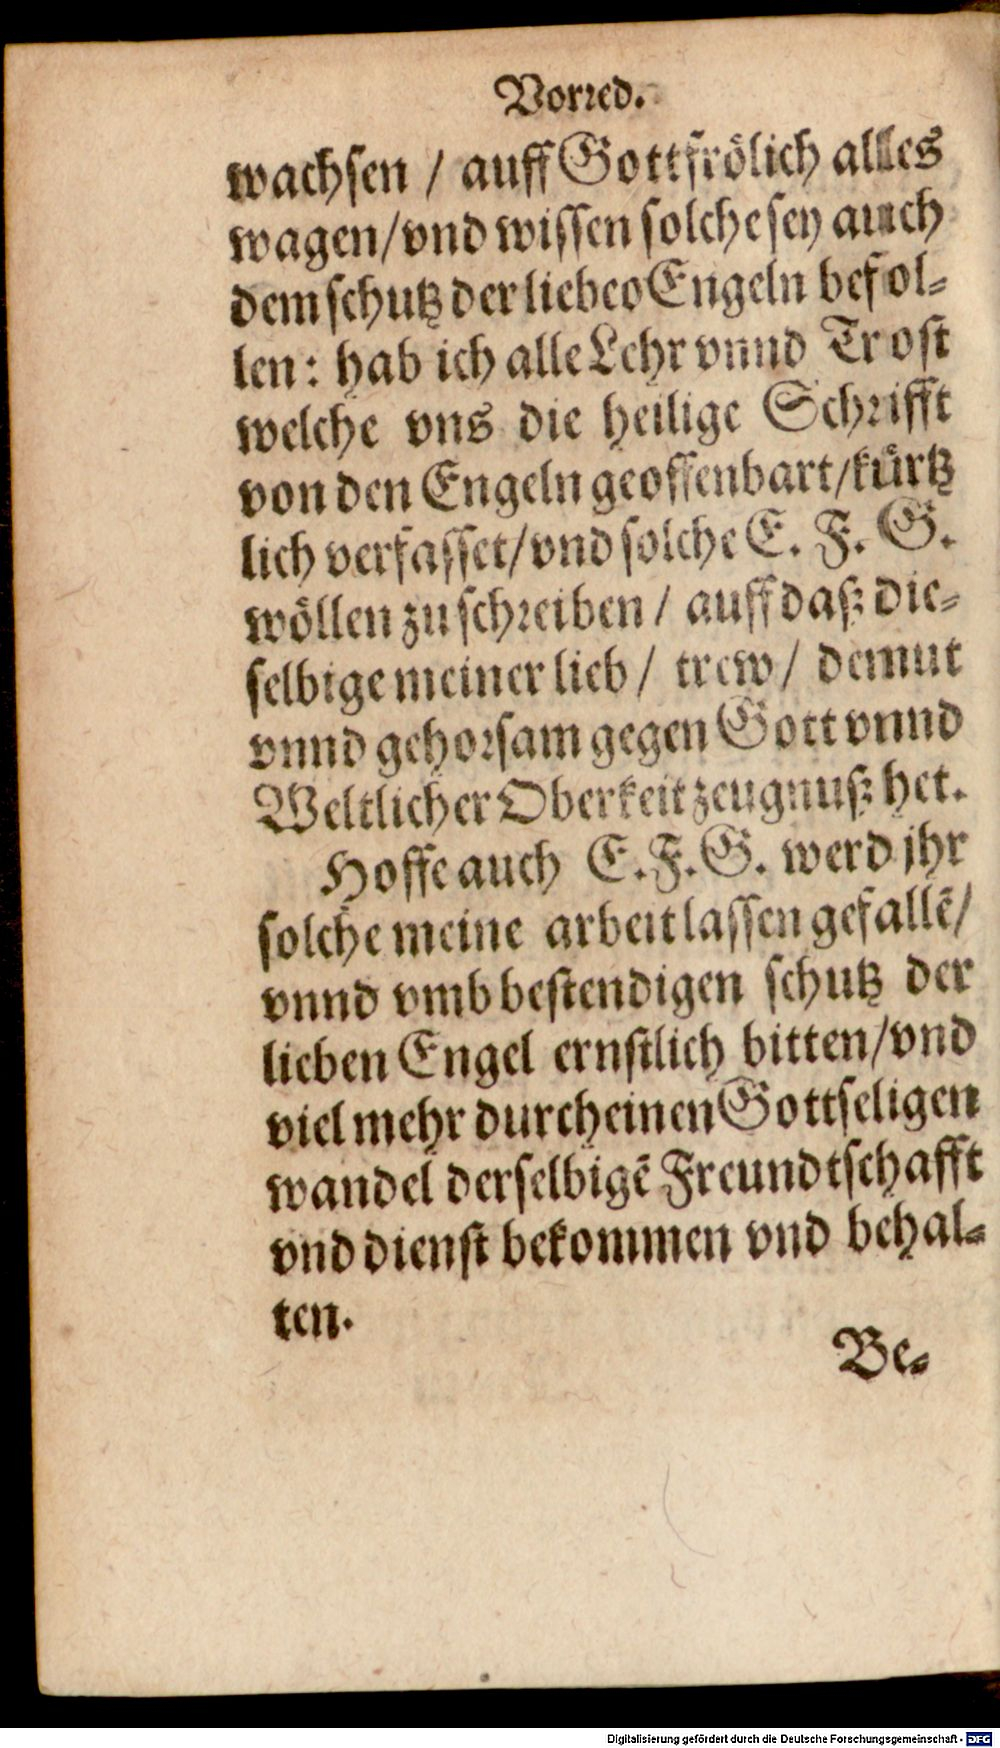 Vorred.
wachsen / auff Gott frölich alles
wagen/vnd wissen solche sey auch
dem schutz der liebeo Engeln befol-
len: hab ich alle Lehr vnnd Trost
welche vns die heilige Schrifft
von den Engeln geoffenbart/kürtz
lich verfasset/vnd solche E. F. G.
wöllen zu schreiben / auff daß die-
selbige meiner lieb/ trew/ demut
vnnd gehorsam gegen Gott vnnd
Weltlicher Oberkeit zeugnuß het.
Hoffe auch E. F. G. werd jhr
solche meine arbeit lassen gefallē/
vnnd vmb bestendigen schutz der
lieben Engel ernstlich bitten/vnd
viel mehr durch einen Gottseligen
wandel derselbigē Freundtschafft
vnd dienst bekommen vnd behal-
ten.
Be-
Digitalisierung gefördert durch die Deutsche Forschungsgemeinschaft - DFG